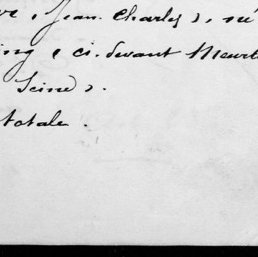 ve, Jean Charles), né
ing, ci-devant Meurt
Seine).
totale.